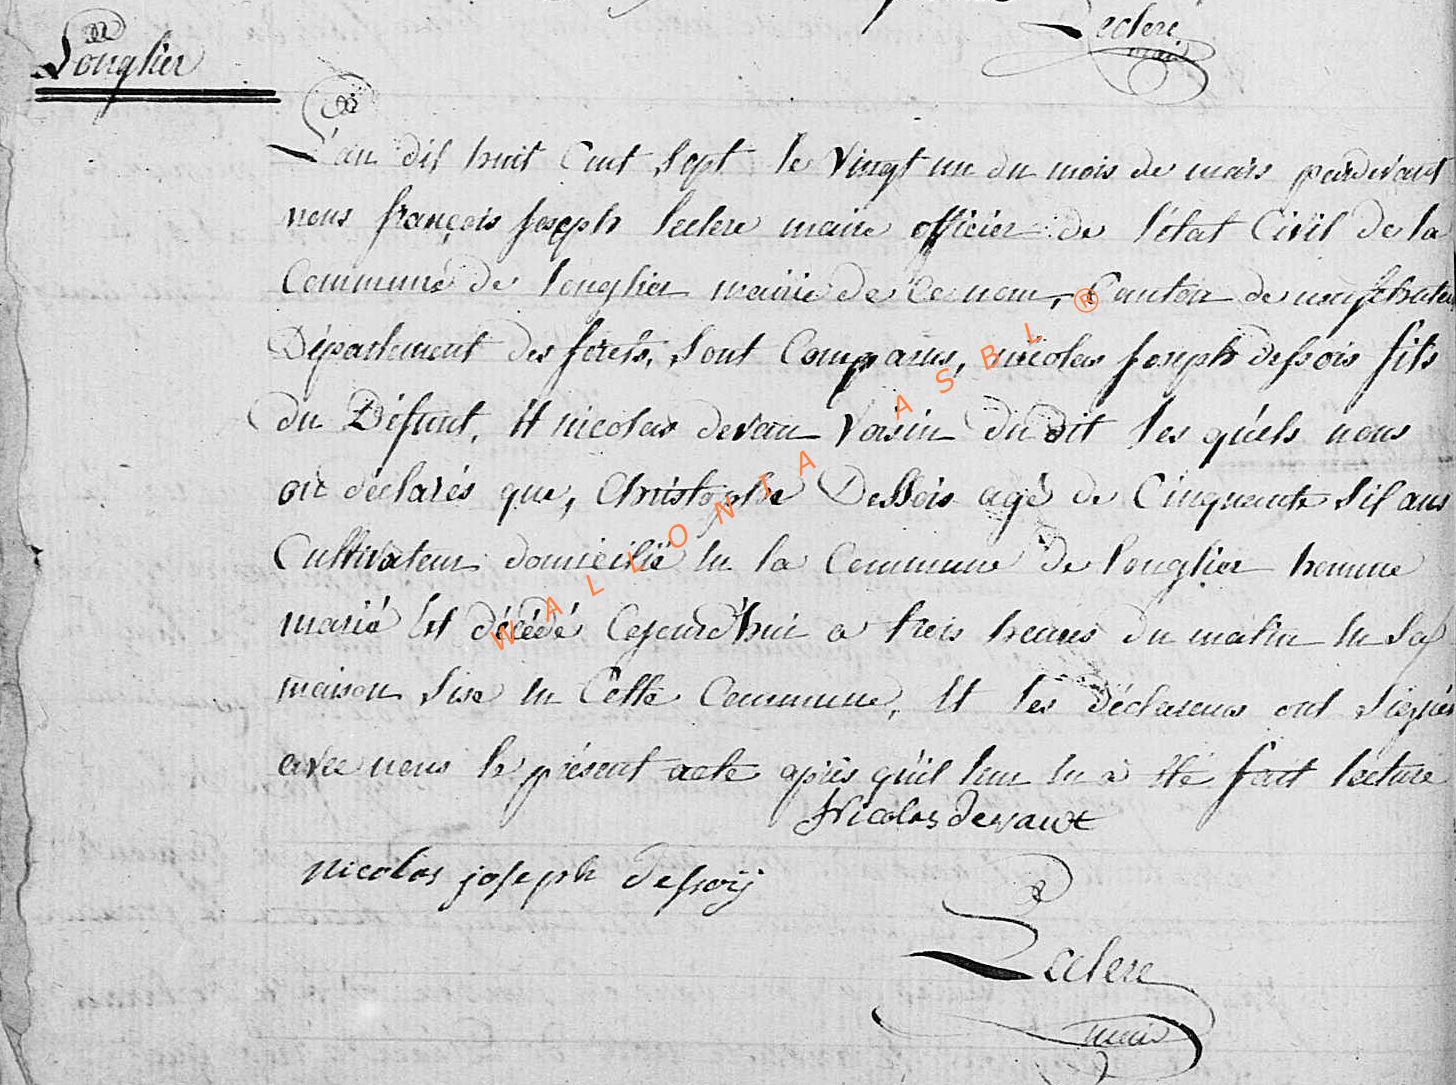 Leclere
maire
Longlier
L'an dix huit Cent Sept le vingt un du mois de mars pardevant
nous françois Joseph leclere maire officier de l'état Civil de la
Commune de longlier mairie de Ce nom, Canton de neufchateau
Département des forêts, Sont Comparus, nicolas Joseph dessois fils
du Défunt, Et nicolas devau Voisin du dit les quéls nous
ont déclarés que, Christophe Dessois agé de Cinquante Six ans
Cultivateur domicilié en la Commune de longlier homme
marié Est décédé Cejourd'hui a trois heures du matin en Sa
maison Sise en Cette Commune, Et les déclarens ont Signés
avec nous le présent acte après qu'il leur en à été fait lecture
Nicolas devaux
nicolas joseph dessoÿ
Leclere
maire
WALLONIA ASBL ®